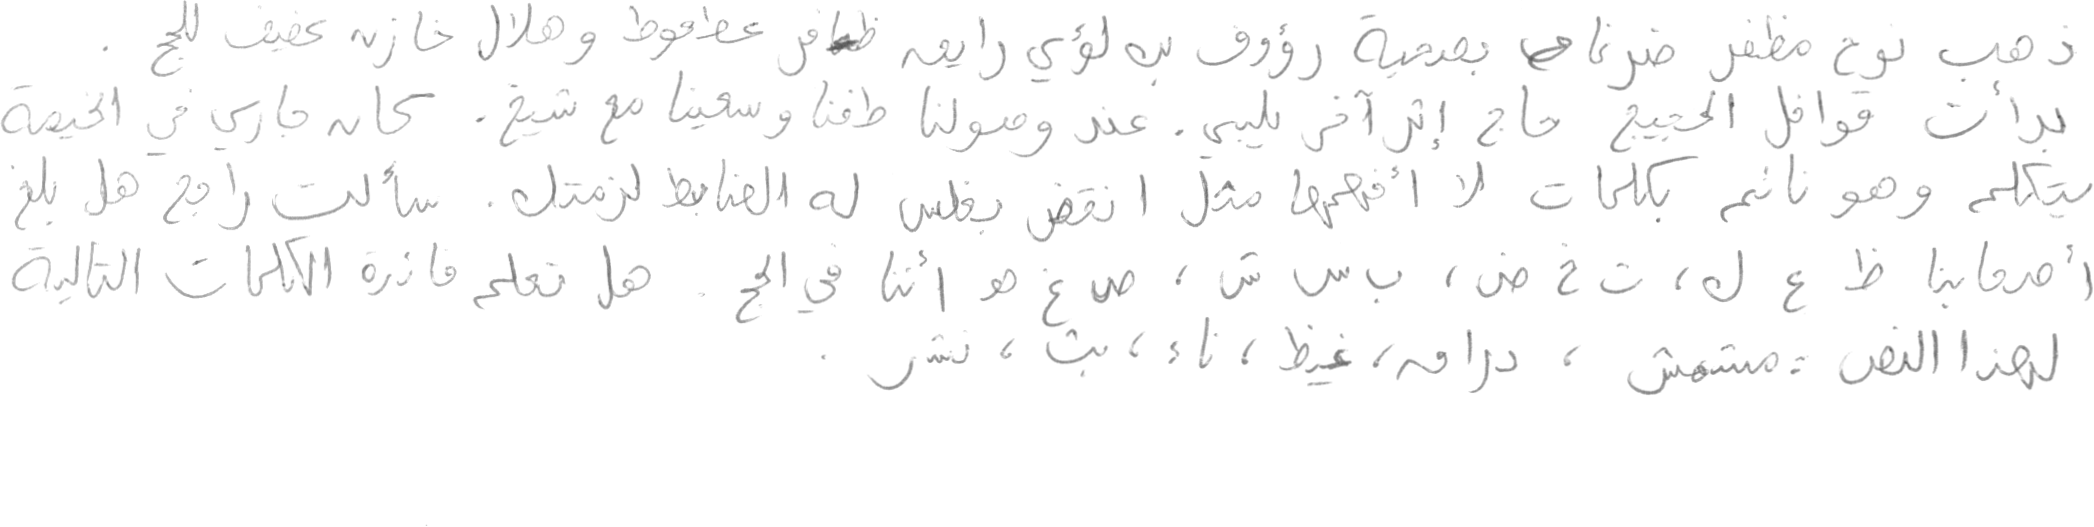 ذهب نوح مظفر ضرغام بصحبة رؤوف بن لؤي رايق ظافر عطعوط وهلال خازن عفيف للحج .
بدأت قوافل الحجيج حاج إثر آخر يلبي. عند وصولنا طفنا وسعينا مع شيخ. كان جاري في الخيمة
يتكلم وهو نائم بكلمات لا أفهمها مثل انقض يغلس له الضابط لزمتك. سألت راجح هل بلغ
أصحابنا ظ ع ل، ت خ ض، ب س ش، ص غ هو أننا في الحج. هل تعلم فائدة الكلمات التالية
لهذا النص: مشمش ، دراق، غيظ، ناء، بث، نشر .